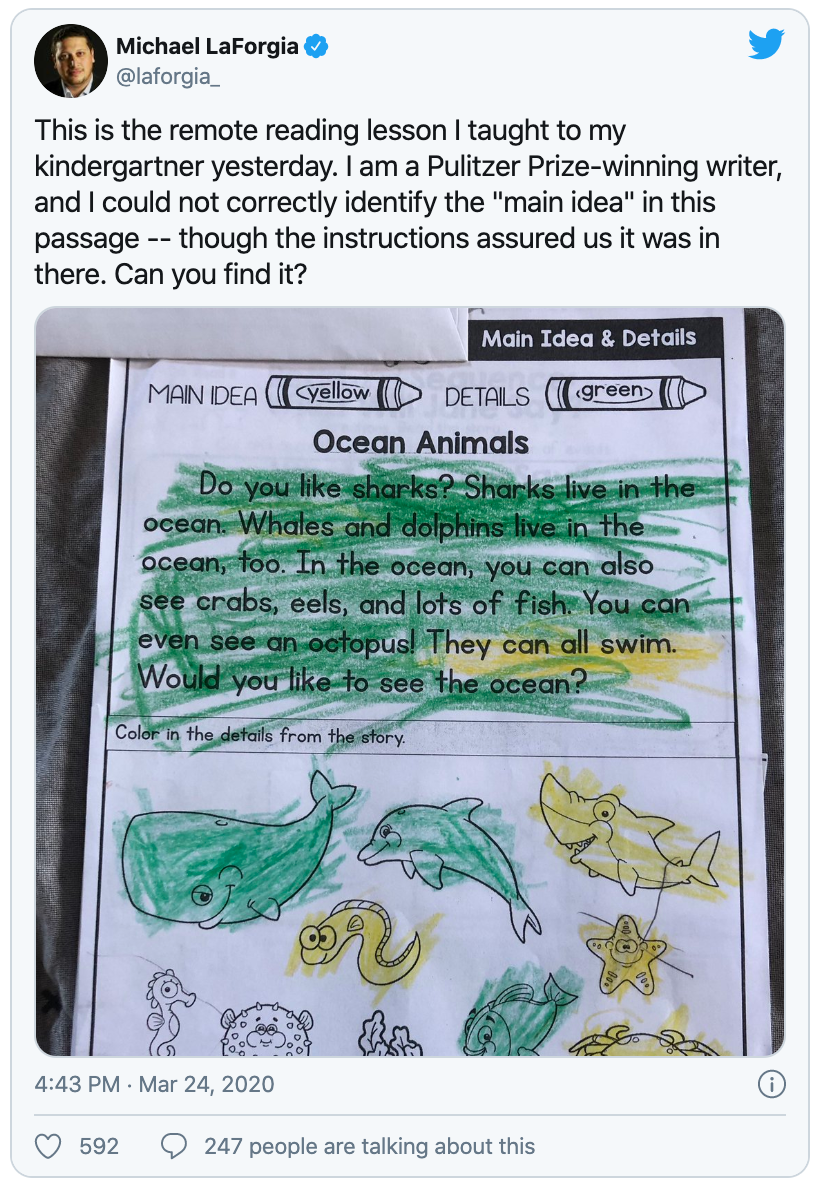 Michael LaForgia
@laforgia_
This is the remote reading lesson I taught to my
kindergartner yesterday. I am a Pulitzer Prize-winning writer,
and I could not correctly identify the "main idea" in this
passage -- though the instructions assured us it was in
there. Can you find it?
Main Idea & Details
MAIN IDEA yellow DETAILS green
Ocean Animals
Do you like sharks? Sharks live in the
ocean. Whales and dolphins live in the
ocean, too. In the ocean, you can also
see crabs, eels, and lots of fish. You can
even see an octopus! They can all swim.
Would you like to see the ocean?
Color in the details from the story.
4:43 PM · Mar 24, 2020
592 247 people are talking about this